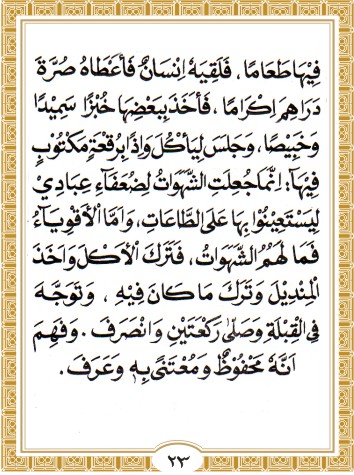 فِيْهَا طَعَامًا، فَلَقِيَهُ اِنْسَانٌ فَأَعْطَاهُ صُرَّةَ
دَرَاهِمَ اِكْرَامًا، فَأَخَذَ بِبَعْضِهَا خُبْزًا سَمِيْدًا
وَخَبِيْصًا، وَجَلَسَ لِيَأْكُلَ وَاِذًا بِرُقْعَةٍ مَكْتُوْبٍ
فِيْهَا: اِنَّمَا جُعِلَتِ الشَّهَوَاتُ لِضُعَفَاءِ عِبَادِيْ
لِيَسْتَعِيْنُوْا بِهَا عَلَى الطَّاعَاتِ، وَاَمَّا الْأَقْوِيَاءُ
فَمَا لَهُمُ الشَّهَوَاتُ، فَتَرَكَ الْأَكْلَ وَاَخَذَ
الْمِنْدِيْلَ وَتَرَكَ مَا كَانَ فِيْهِ، وَتَوَجَّهَ
فِي الْقِبْلَةِ وَصَلَّى رَكْعَتَيْنِ وَانْصَرَفَ. وَفَهِمَ
اَنَّهُ مَحْفُوْظٌ وَمُعْتَنًى بِهِ وَعَرَفَ.
٢٣